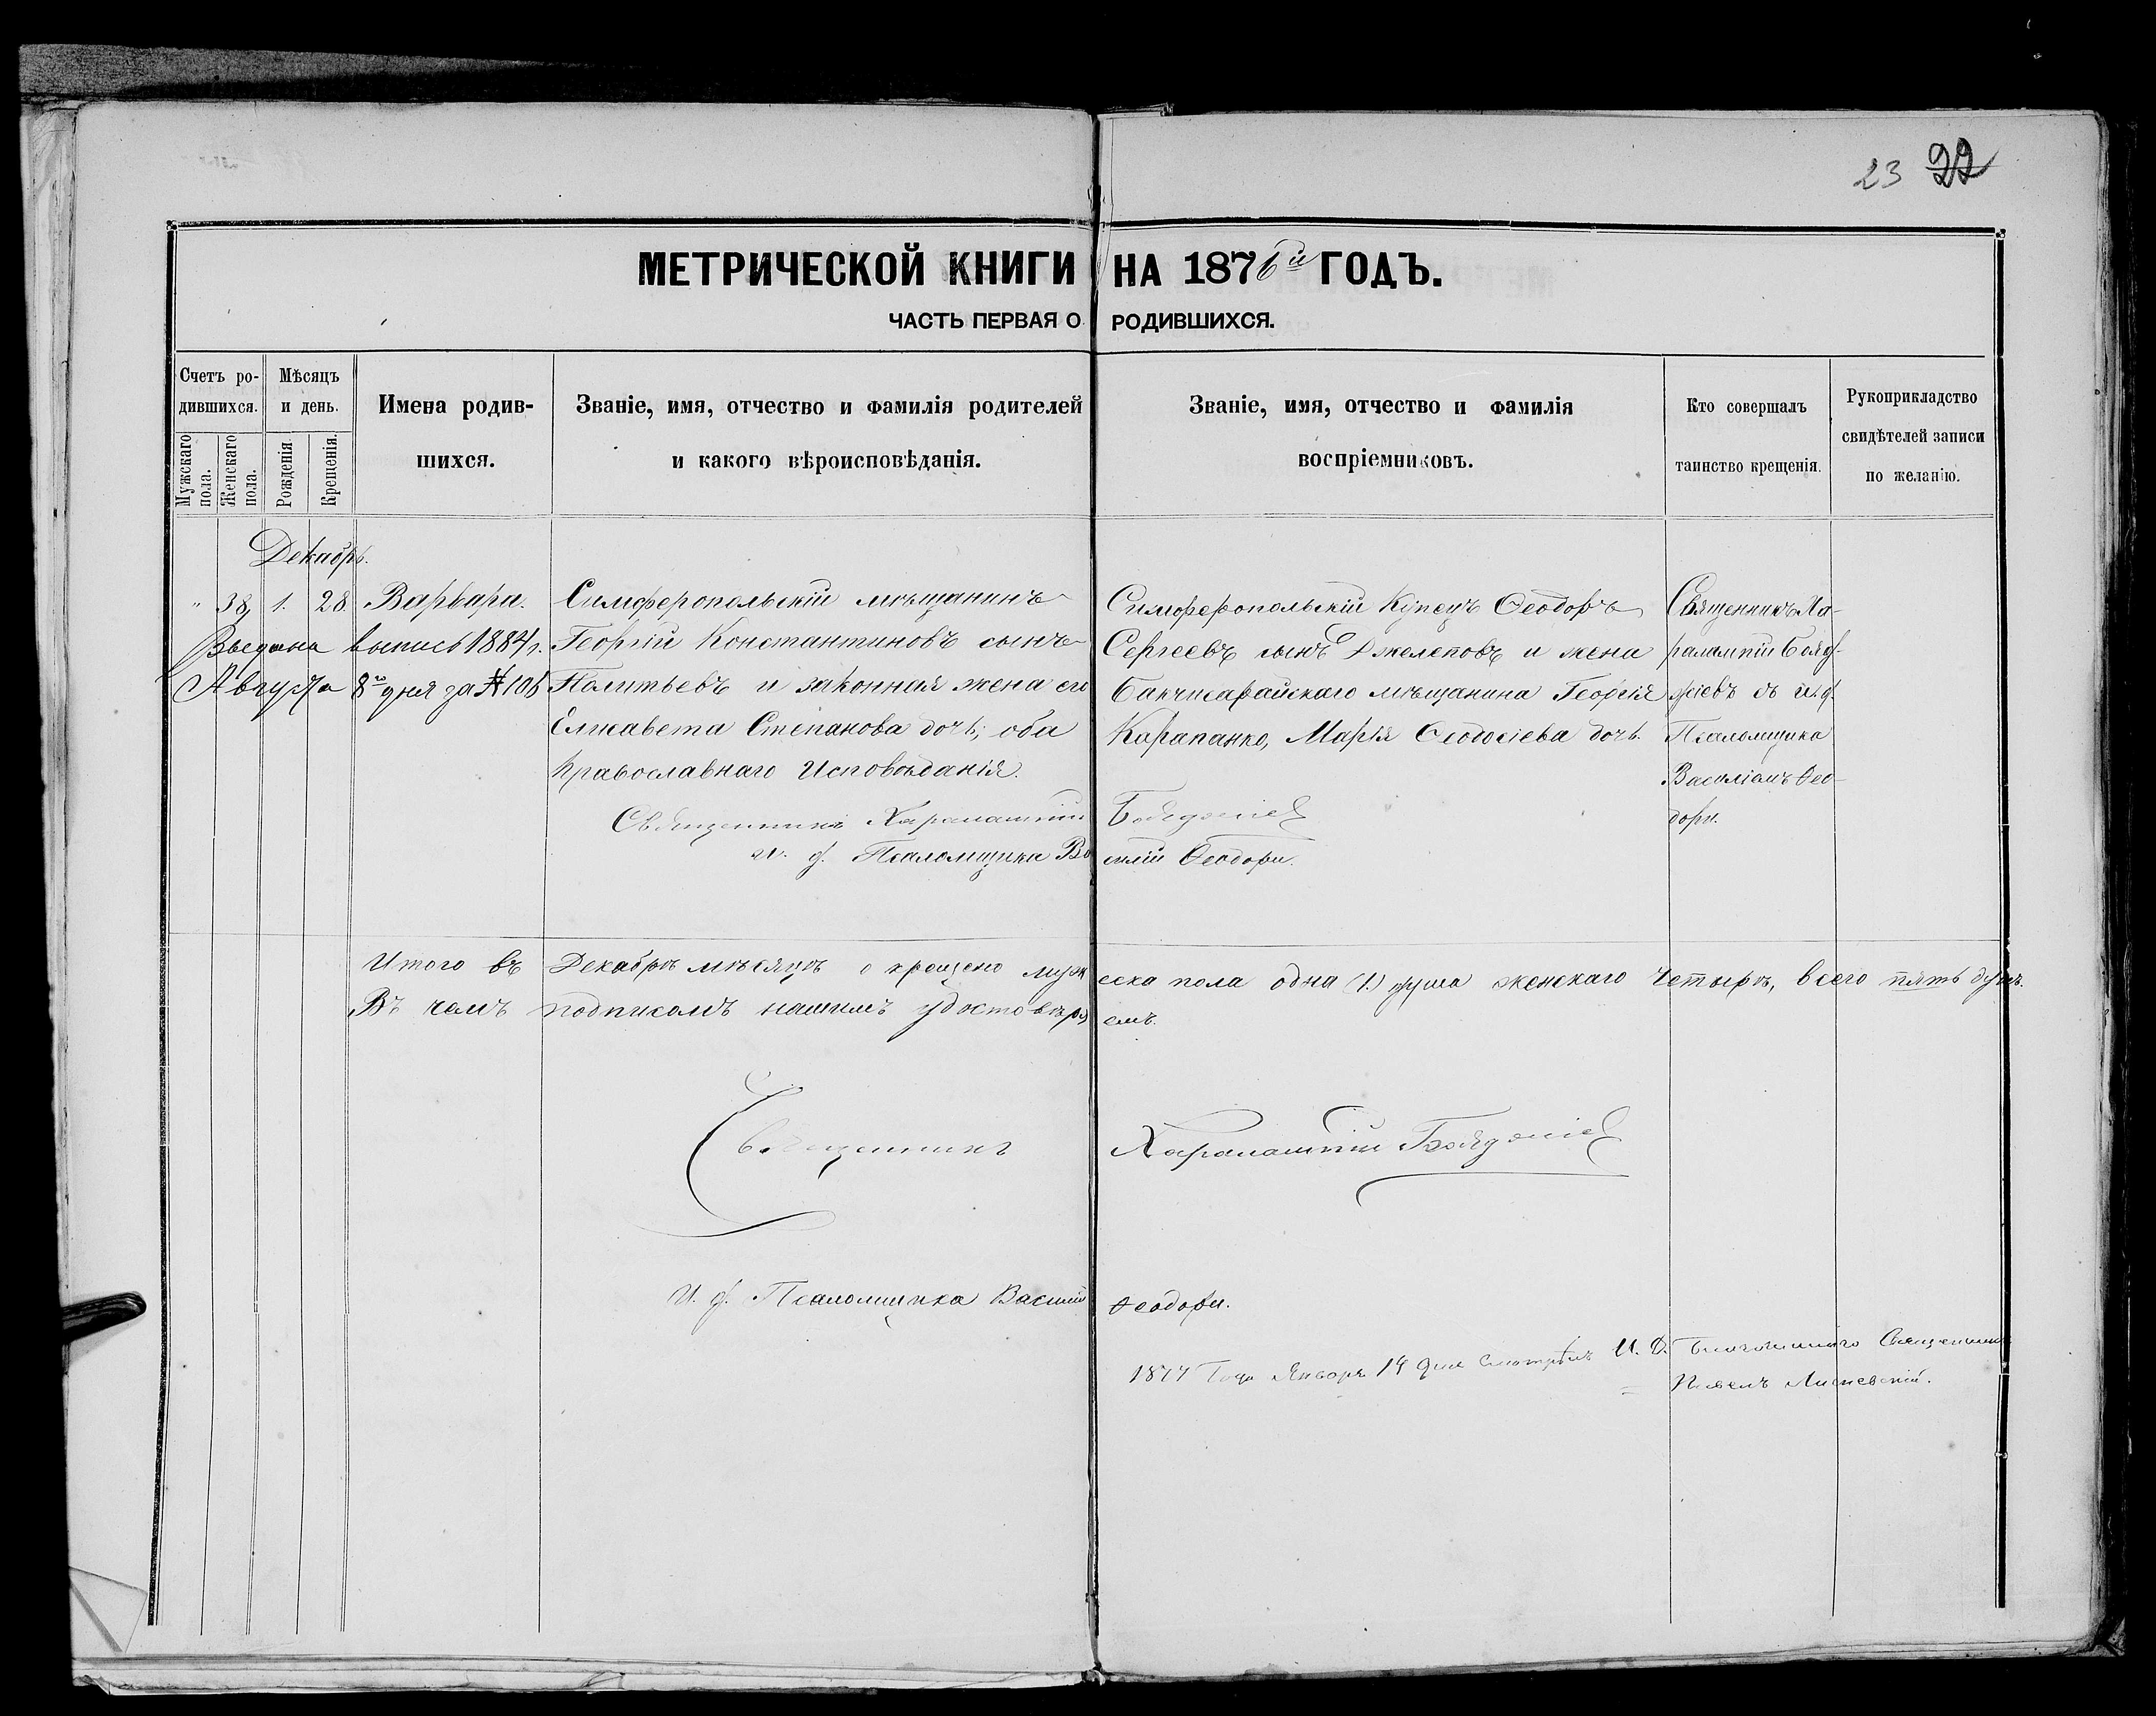 23 22
МЕТРИЧЕСКОЙ КНИГИ НА 1876й ГОДЪ.
ЧАСТЬ ПЕРВАЯ О РОДИВШИХСЯ.
Счетъ ро-
дившихся.
Мужскаго пола.
Женскаго пола.
Мѣсяцъ
и день.
Рожденія
Крещенія.
Имена родив-
шихся.
Званіе, имя, отчество и фамилія родителей
и какого вѣроисповѣданія.
Званіе, имя, отчество и фамилія
воспріемниковъ.
Кто совершалъ
таинство крещенія.
Рукоприкладство
свидѣтелей записи
по желанію.
Декабрь.
" 38, 1. 28. Варвара.
выпись 1884 г.
Августа 8го дня за № 106
Симферопольскій мѣщанинъ
Георгій Константиновъ сынъ
и законная жена его
Елисавета Степанова дочь; оба
Православнаго Исповѣданія.
Симферопольскій Купецъ Ѳеодоръ
Сергеевъ сынъ Джелеповъ и жена
Бакчисарайскаго мѣщанина Георгія
Карапанко, Марія Ѳеодосіева дочь.
Священникъ Ха-
ралампій Бояд-
жіевъ съ и. д.
Псаломщика
Василіемъ Ѳео-
дори.
Священникъ Харалампій Бояджіев
и. д. Псаломщика Василій Ѳеодори.
Итого въ Декабрѣ мѣсяцѣ крещено муж еска пола одна (1.) душа женскаго четыре, всего пять душъ.
Въ чемъ подписомъ нашимъ удостовѣря емъ.
Священникъ Харалампій Бояджіев
И. д. Псаломщика Василій Ѳеодори.
1877 Года Января 14 дня смотрѣлъ И. Д. Благочиннаго Священникъ
Павелъ